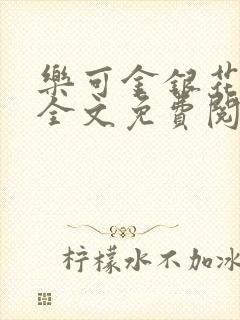 樂可金銀花
全文免費閱
柠檬水不加冰